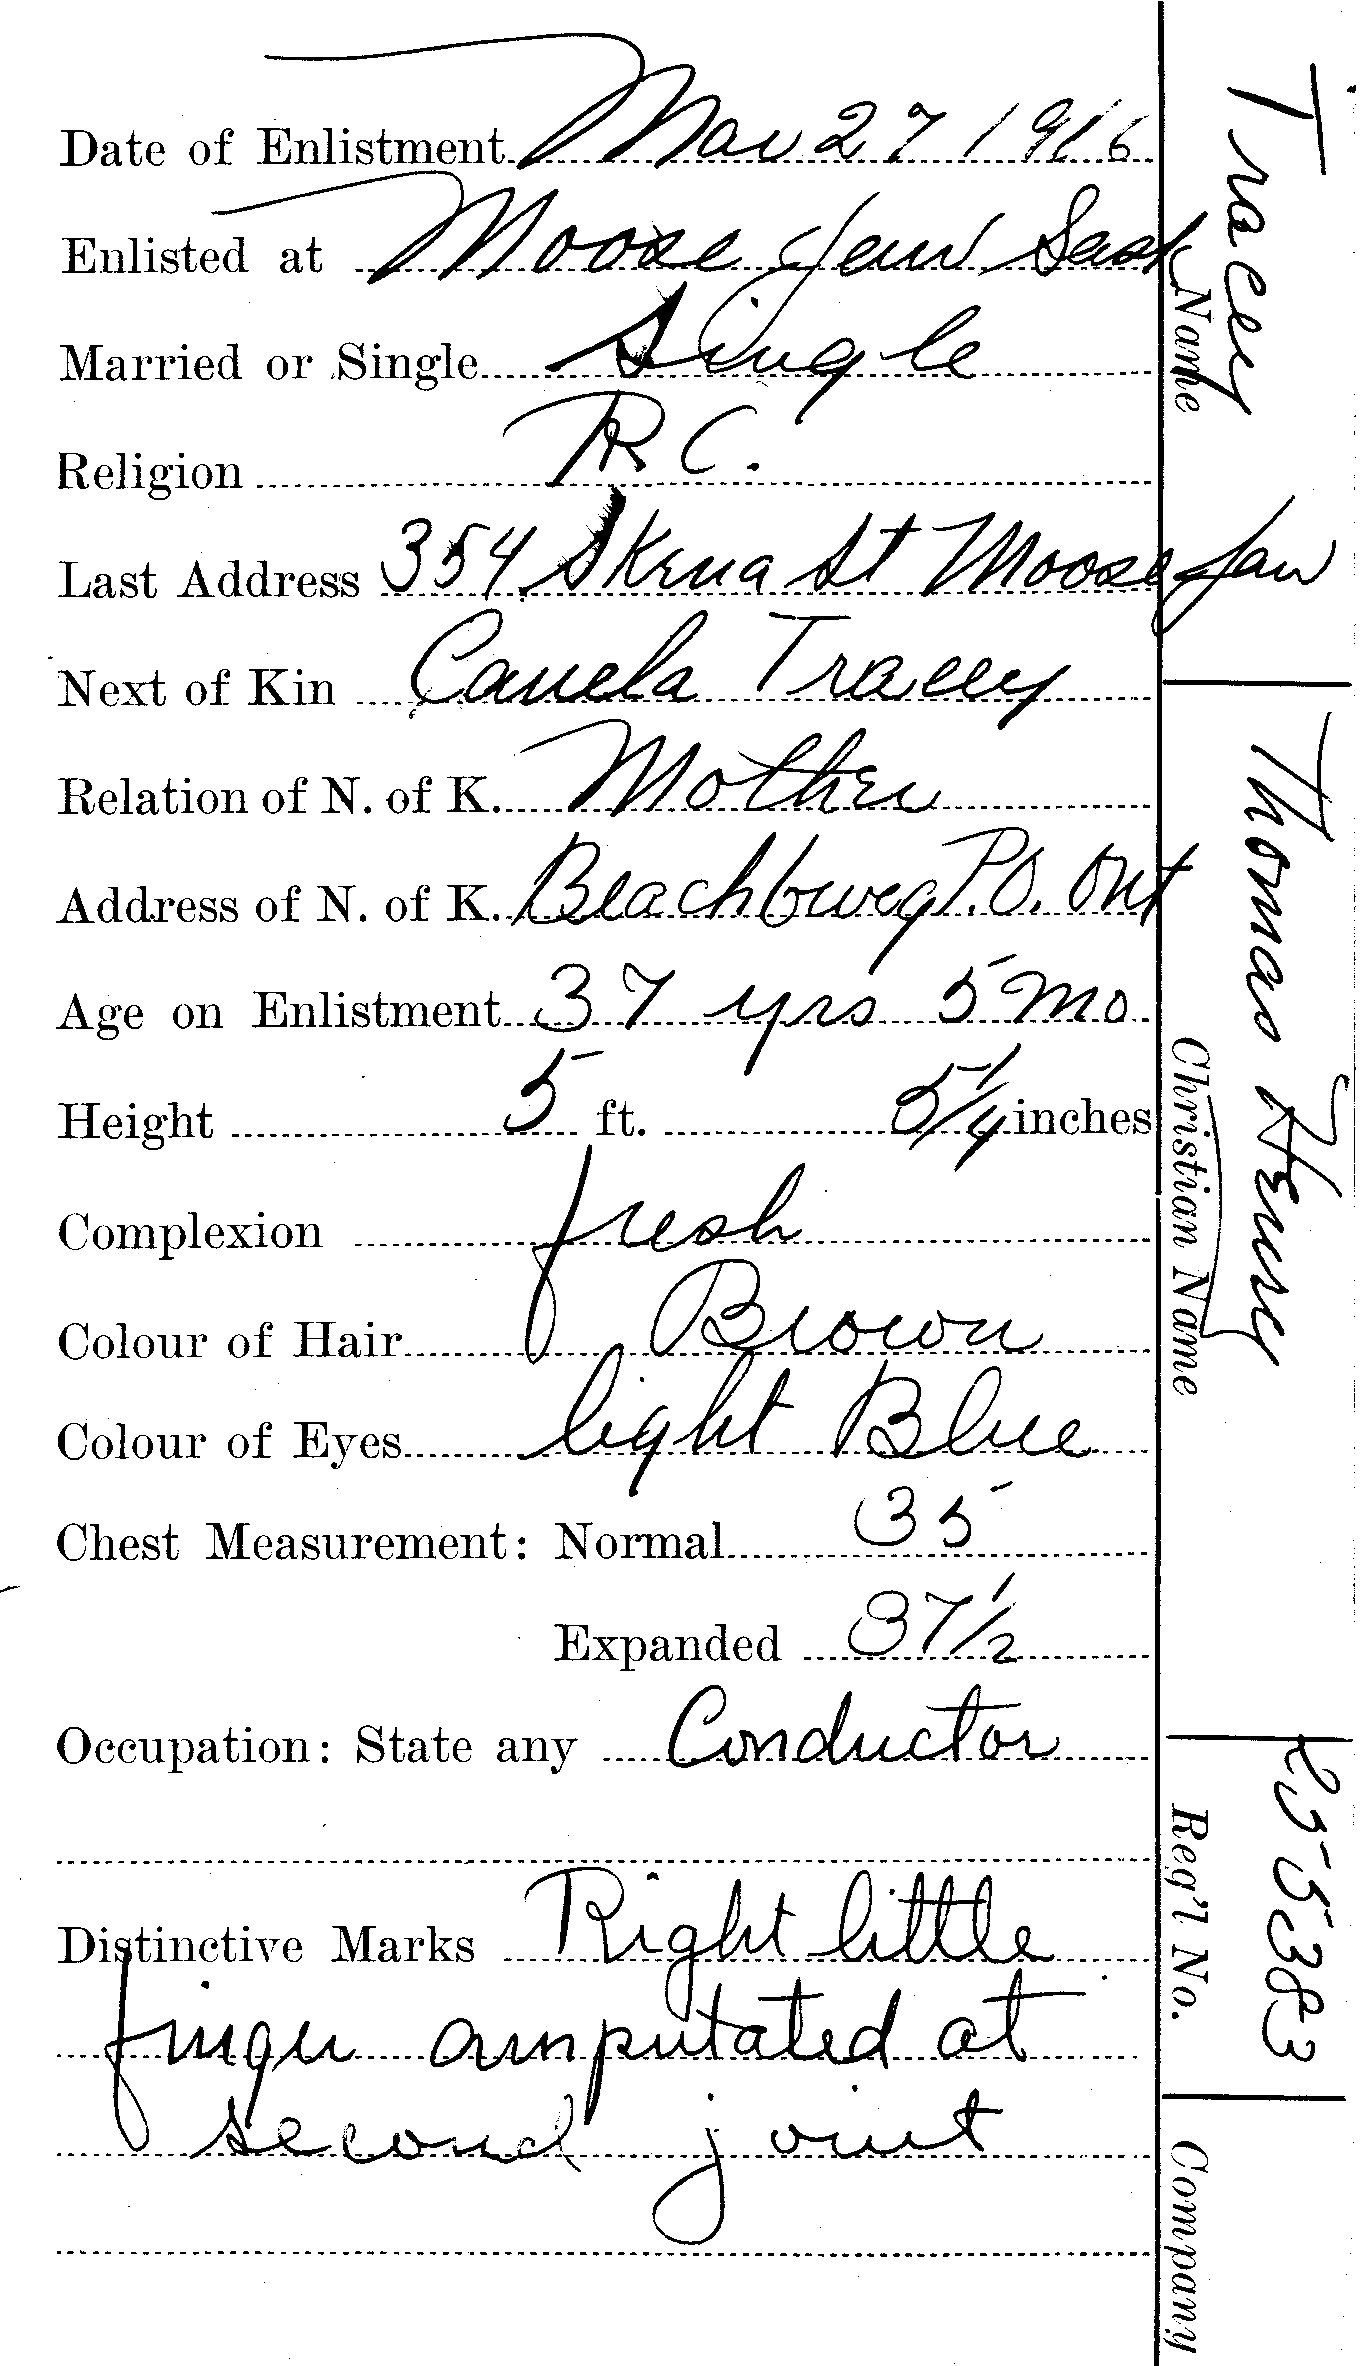 Date of Enlistment Mar 27 1916
Enlisted at Moose Jaw Sask
Married or Single Single
Religion R C.
Last Address 354 Skena St Moose Jaw
Next of Kin Tracey
Relation of N. of K. Mother
Address of N. of K. Beachburg P.O. Ont
Age on Enlistment 37 yrs 5 mo
Height 5 ft. 5 1/4 inches
Complexion fresh
Colour of Hair Brown
Colour of Eyes light Blue
Chest Measurement: Normal 35
Expanded 37 1/2
Occupation: State any Conductor
Distinctive Marks Right little
finger amputated at
second joint
Tracey
Name
Thomas Henry
Christian Name
255383
Reg'l No.
Company